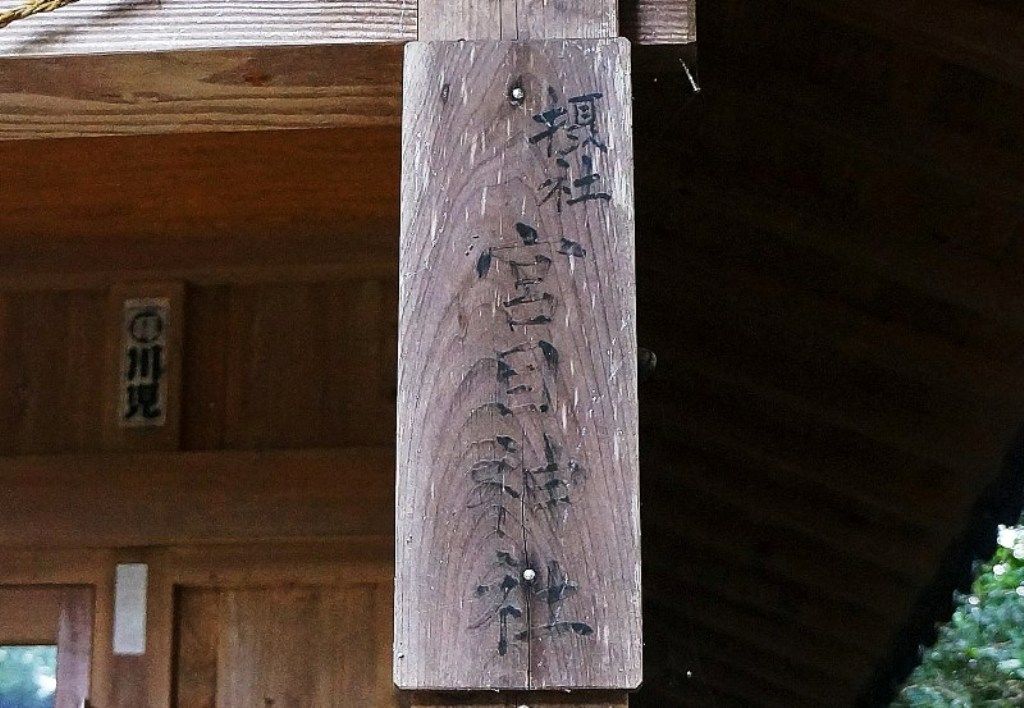 摂社
宮目神社
川児